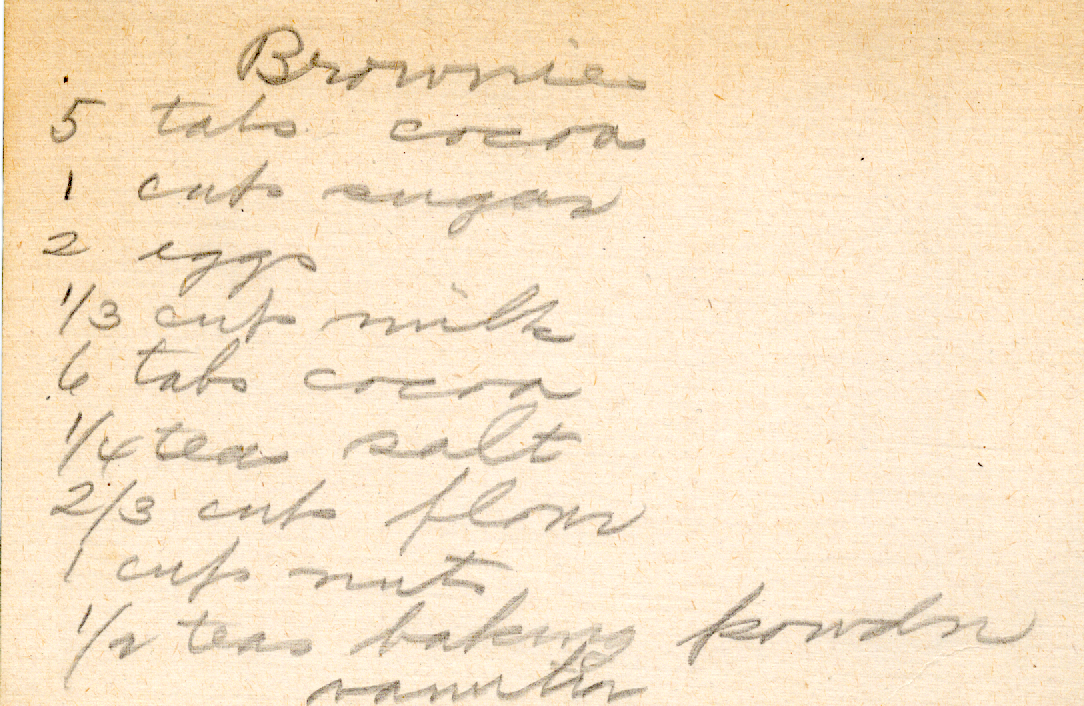 Brownies
5 tabs cocoa
1 cup sugar
2 eggs
1/3 cup milk
6 tabs cocoa
1/4 tea salt
2/3 cup flour
1 cup nuts
1/2 teas baking powder
vanilla